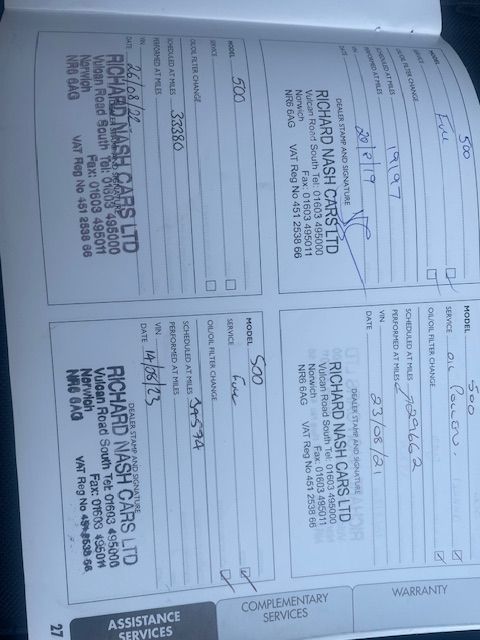 MODEL 500
SERVICE Full
OIL/OIL FILTER CHANGE
SCHEDULED AT MILES
PERFORMED AT MILES 19197
VIN
DATE 20/8/19
DEALER STAMP AND SIGNATURE
RICHARD NASH CARS LTD
Vulcan Road South Tel: 01603 495000
Norwich Fax: 01603 495011
NR6 6AG VAT Reg No 451 2538 66
MODEL 500
SERVICE oil
OIL/OIL FILTER CHANGE
SCHEDULED AT MILES
PERFORMED AT MILES 29662
VIN
DATE 23/08/21
DEALER STAMP AND SIGNATURE
RICHARD NASH CARS LTD
Vulcan Road South Tel: 01603 495000
Norwich Fax: 01603 495011
NR6 6AG VAT Reg No 451 2538 66
MODEL 500
SERVICE
OIL/OIL FILTER CHANGE
SCHEDULED AT MILES
PERFORMED AT MILES 33380
VIN
DATE 26/08/22
RICHARD NASH CARS LTD
Vulcan Road South Tel: 01603 495000
Norwich Fax: 01603 495011
NR6 6AG VAT Reg No 451 2538 66
MODEL 500
SERVICE Full
OIL/OIL FILTER CHANGE
SCHEDULED AT MILES
PERFORMED AT MILES
VIN
DATE 14/08/23
DEALER STAMP AND SIGNATURE
RICHARD NASH CARS LTD
Vulcan Road South Tel: 01603 495000
Norwich Fax: 01603 495011
NR6 6AG VAT Reg No 451 2538 66
WARRANTY
COMPLEMENTARY
SERVICES
ASSISTANCE
SERVICES
27